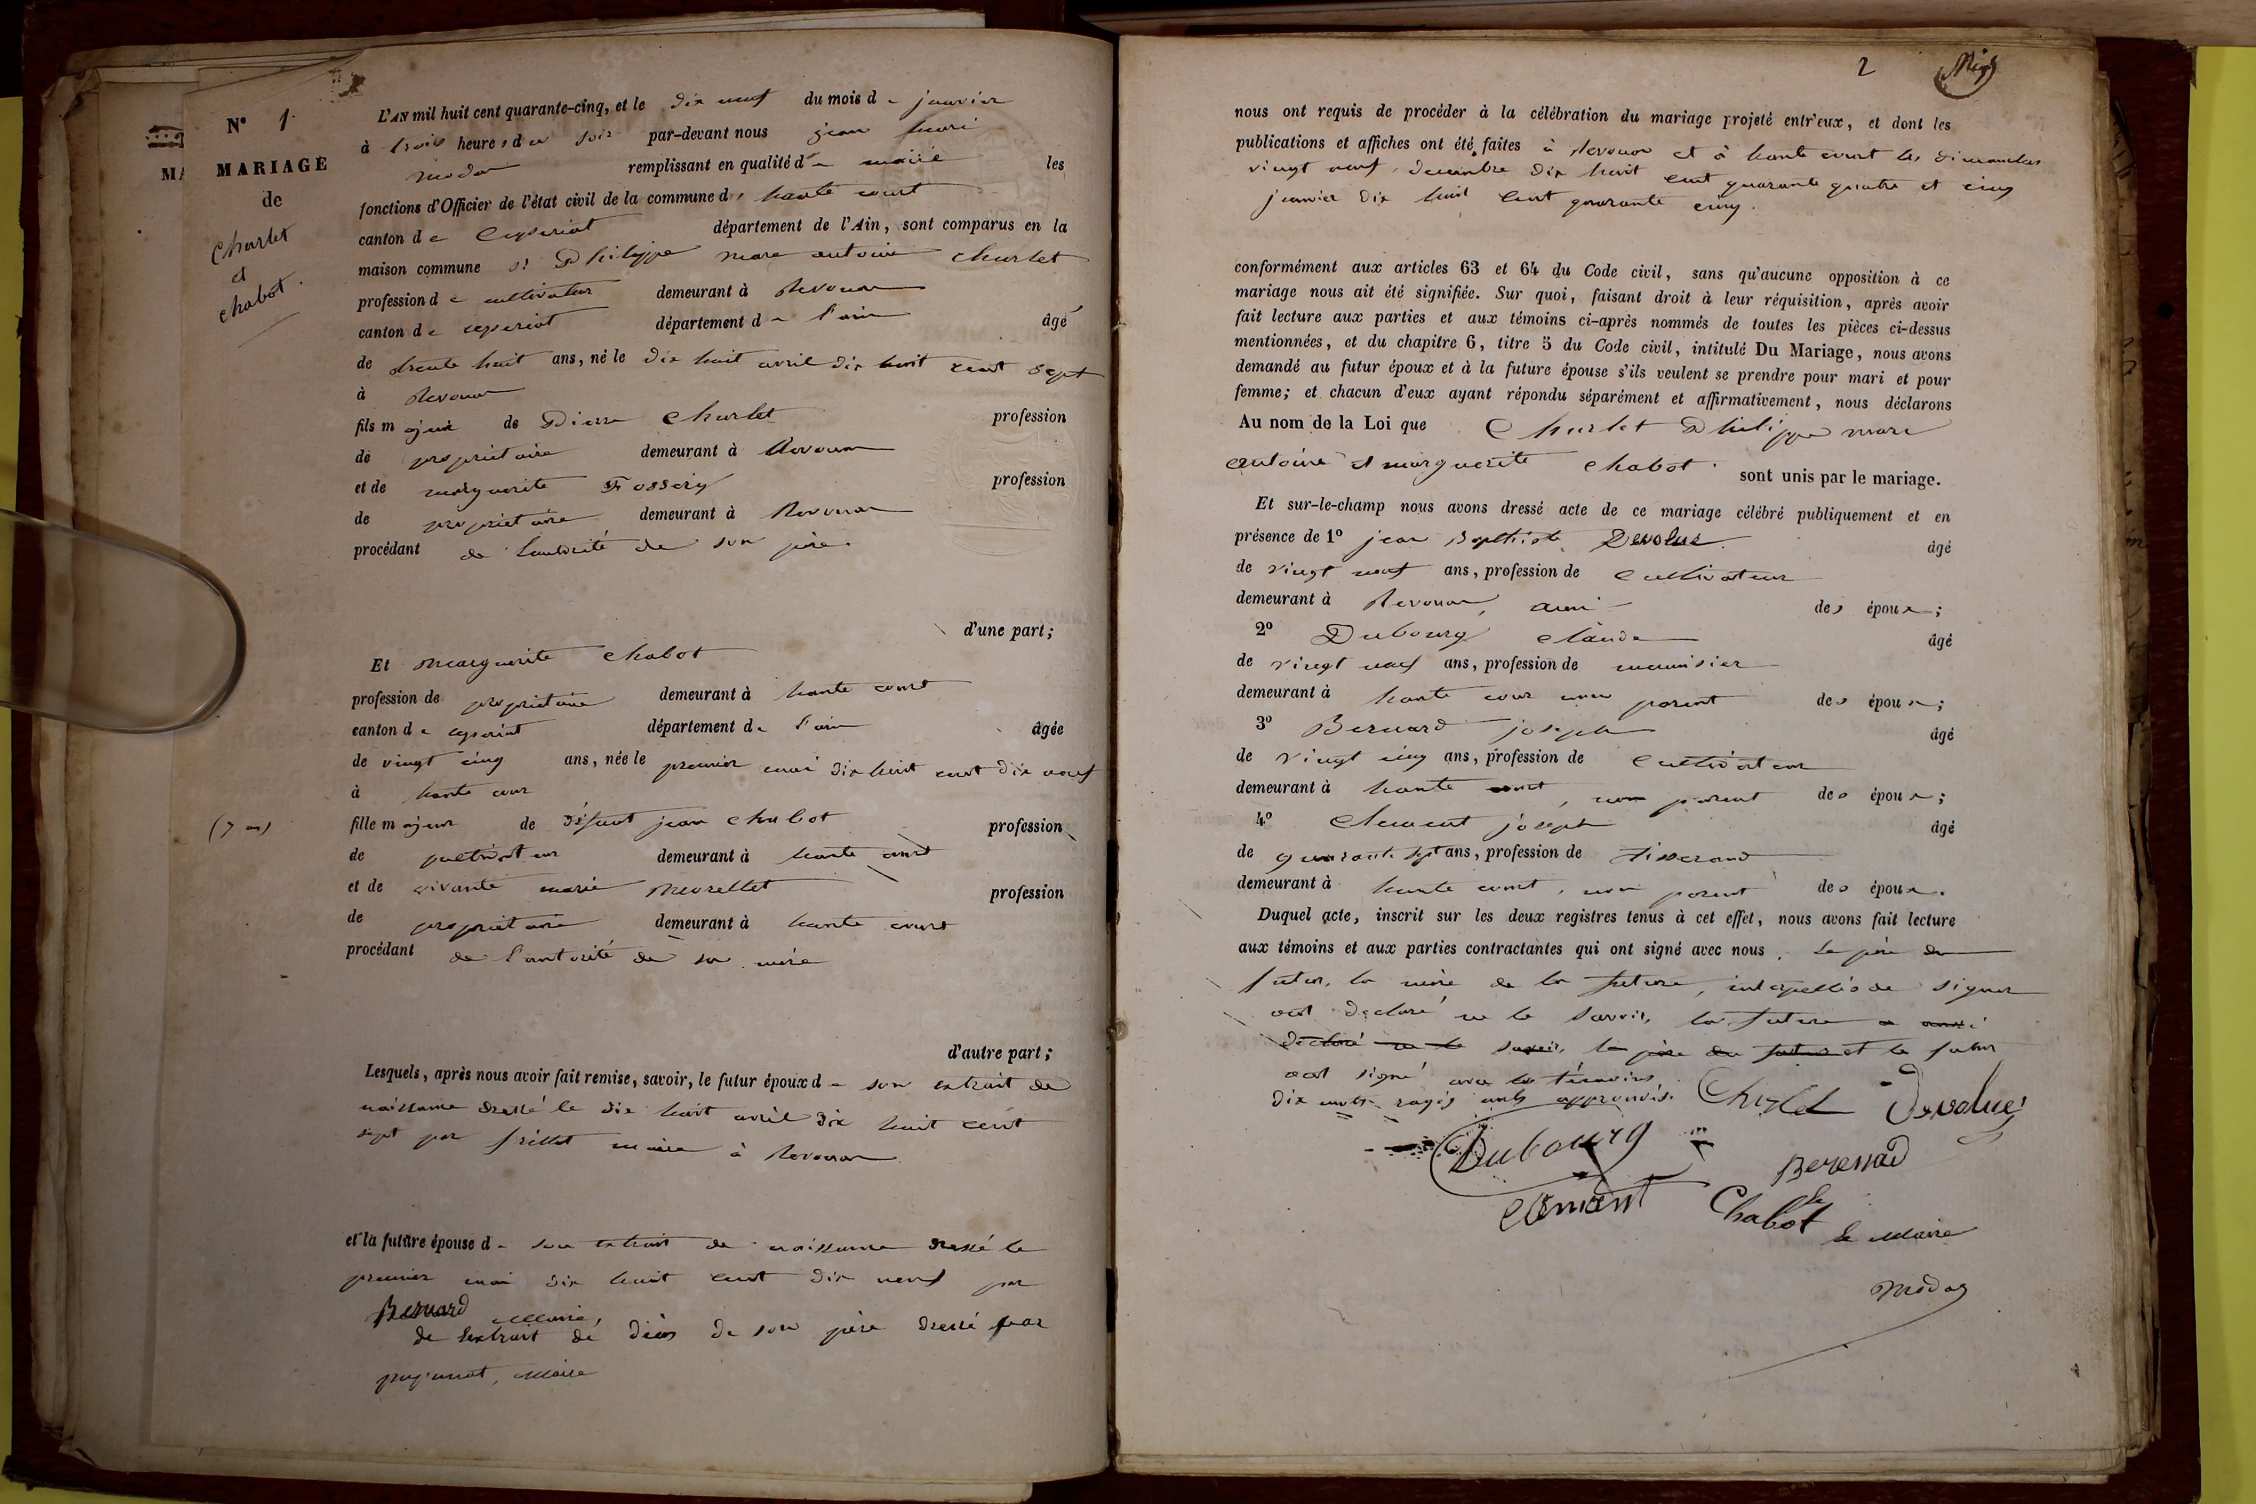 N° 1
MARIAGE
de
Charlet
et
chabot.
MA
(7 an)
L'AN mil huit cent quarante-cinq, et le dix neuf du mois de janvier
à trois heures du soir par-devant nous jean marie
modas remplissant en qualité de maire les
fonctions d'Officier de l'état civil de la commune d' haute court
canton de ceyseriat département de l'Ain, sont comparus en la
maison commune Sr Philippe marc antoine Charlet
profession de cultivateur demeurant à Revonas
canton de ceyseriat département de l'ain âgé
de trente huit ans, né le dix huit avril dix huit cent sept
à Revonas
fils majeur de Pierre Charlet profession
de propriétaire demeurant à Revonas
et de marguerite profession
de propriétaire demeurant à Revonas
procédant de l'autorité de son père.
d'une part;
Et marguerite chabot
profession de propriétaire demeurant à haute court
canton de ceyseriat département de l'ain âgée
de vingt cinq ans, née le premier mai dix huit cent dix neuf
à haute cour
fille majeur de défunt jean chabot profession
de cultivateur demeurant à haute court
et de vivante marie profession
de propriétaire demeurant à haute court
procédant de l'autorité de sa mère
d'autre part;
Lesquels, après nous avoir fait remise, savoir, le futur époux de son extrait de
naissance dressé le dix huit avril dix huit cent
sept par maire à Revonas
et la future épouse de son extrait de naissance dressé le
premier mai dix huit cent dix neuf par
Bernard Maire,
de l'extrait de décès de son père dressé par
Maire
2
nous ont requis de procéder à la célébration du mariage projeté entr'eux, et dont les
publications et affiches ont été faites à Revonas et à haute court les dimanches
vingt neuf décembre dix huit cent quarante quatre et cinq
janvier dix huit cent quarante cinq.
conformément aux articles 63 et 64 du Code civil, sans qu'aucune opposition à ce
mariage nous ait été signifiée. Sur quoi, faisant droit à leur réquisition, après avoir
fait lecture aux parties et aux témoins ci-après nommés de toutes les pièces ci-dessus
mentionnées, et du chapitre 6, titre 5 du Code civil, intitulé Du Mariage, nous avons
demandé au futur époux et à la future épouse s'ils veulent se prendre pour mari et pour
femme; et chacun d'eux ayant répondu séparément et affirmativement, nous déclarons
Au nom de la Loi que Charlet Philippe marc
antoine et marguerite chabot. sont unis par le mariage.
Et sur-le-champ nous avons dressé acte de ce mariage célébré publiquement et en
présence de 1° jean Baptiste Devolue âgé
de vingt neuf ans, profession de cultivateur
demeurant à Revonas, ami des époux;
2° Dubourg Claude âgé
de vingt neuf ans, profession de menuisier
demeurant à haute cour non parent des époux;
3° Bernard joseph âgé
de vingt cinq ans, profession de cultivateur
demeurant à haute court, non parent des époux;
4° Clement joseph âgé
de quarante sept ans, profession de tisserand
demeurant à haute court, non parent des époux.
Duquel acte, inscrit sur les deux registres tenus à cet effet, nous avons fait lecture
aux témoins et aux parties contractantes qui ont signé avec nous. Le père du
futur, la mère de la future, interpellés de signer
ont déclaré ne le savoir, la future a aussi
déclaré ne le savoir, le père du futur et le futur
ont signé avec les témoins
dix mots rayés nuls approuvés.
Charlet Devolue
Dubourg
Berenard
clément Chabot
le Maire
modas